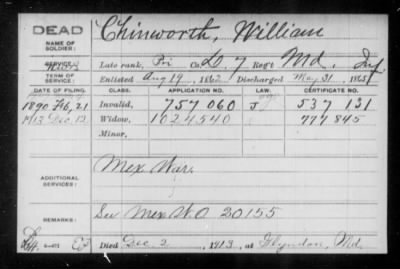 DEAD Chinworth, William
NAME OF SOLDIER:
SERVICE: Late rank, Pri Co. D. 7 Reg't Md. Inf
TERM OF SERVICE: Enlisted Aug 19, 1862 Discharged May 31, 1865
DATE OF FILING. CLASS. APPLICATION NO. LAW. CERTIFICATE NO.
1890 Feb, 21 Invalid, 757 060 J 537 131
1913 Dec. 12 Widow, 1024540 777845
Minor,
ADDITIONAL SERVICES: Mex War.
REMARKS: See Mex W.O 20155
Died Dec. 2, 1913 at Glyndon, Md.